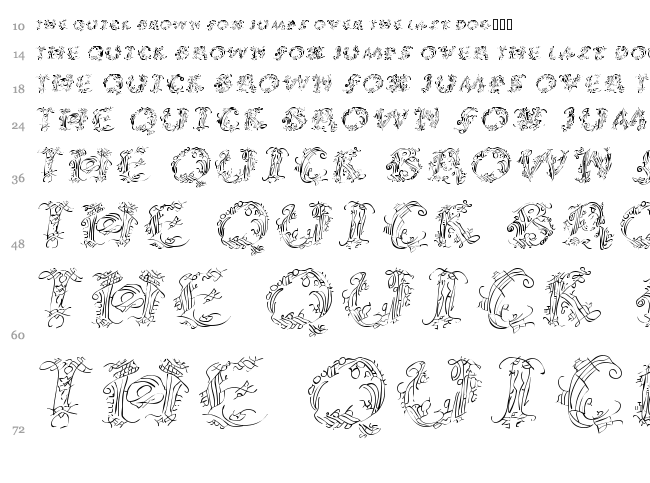 10 THE QUICK BROWN FOX JUMPS OVER THE LAZY DOG
14 THE QUICK BROWN FOX JUMPS OVER THE LAZY DO
18 THE QUICK BROWN FOX JUMPS OVER T
24 THE QUICK BROWN FOX JUM
36 THE QUICK BROWN
48 THE QUICK BRO
60 THE QUICK
72 THE QUIC